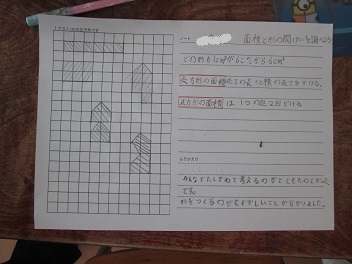 面積と形の関係を調べよう
どの形も1cm²が6こだから6cm²
長方形の面積はたての長さと横の長さをかける。
正方形の面積は1つの辺を2回かける
ふりかえり
みんなとたしかめて考えるのがとてもたのしかった
です。
形をつくるのがむずかしいことがわかりました。